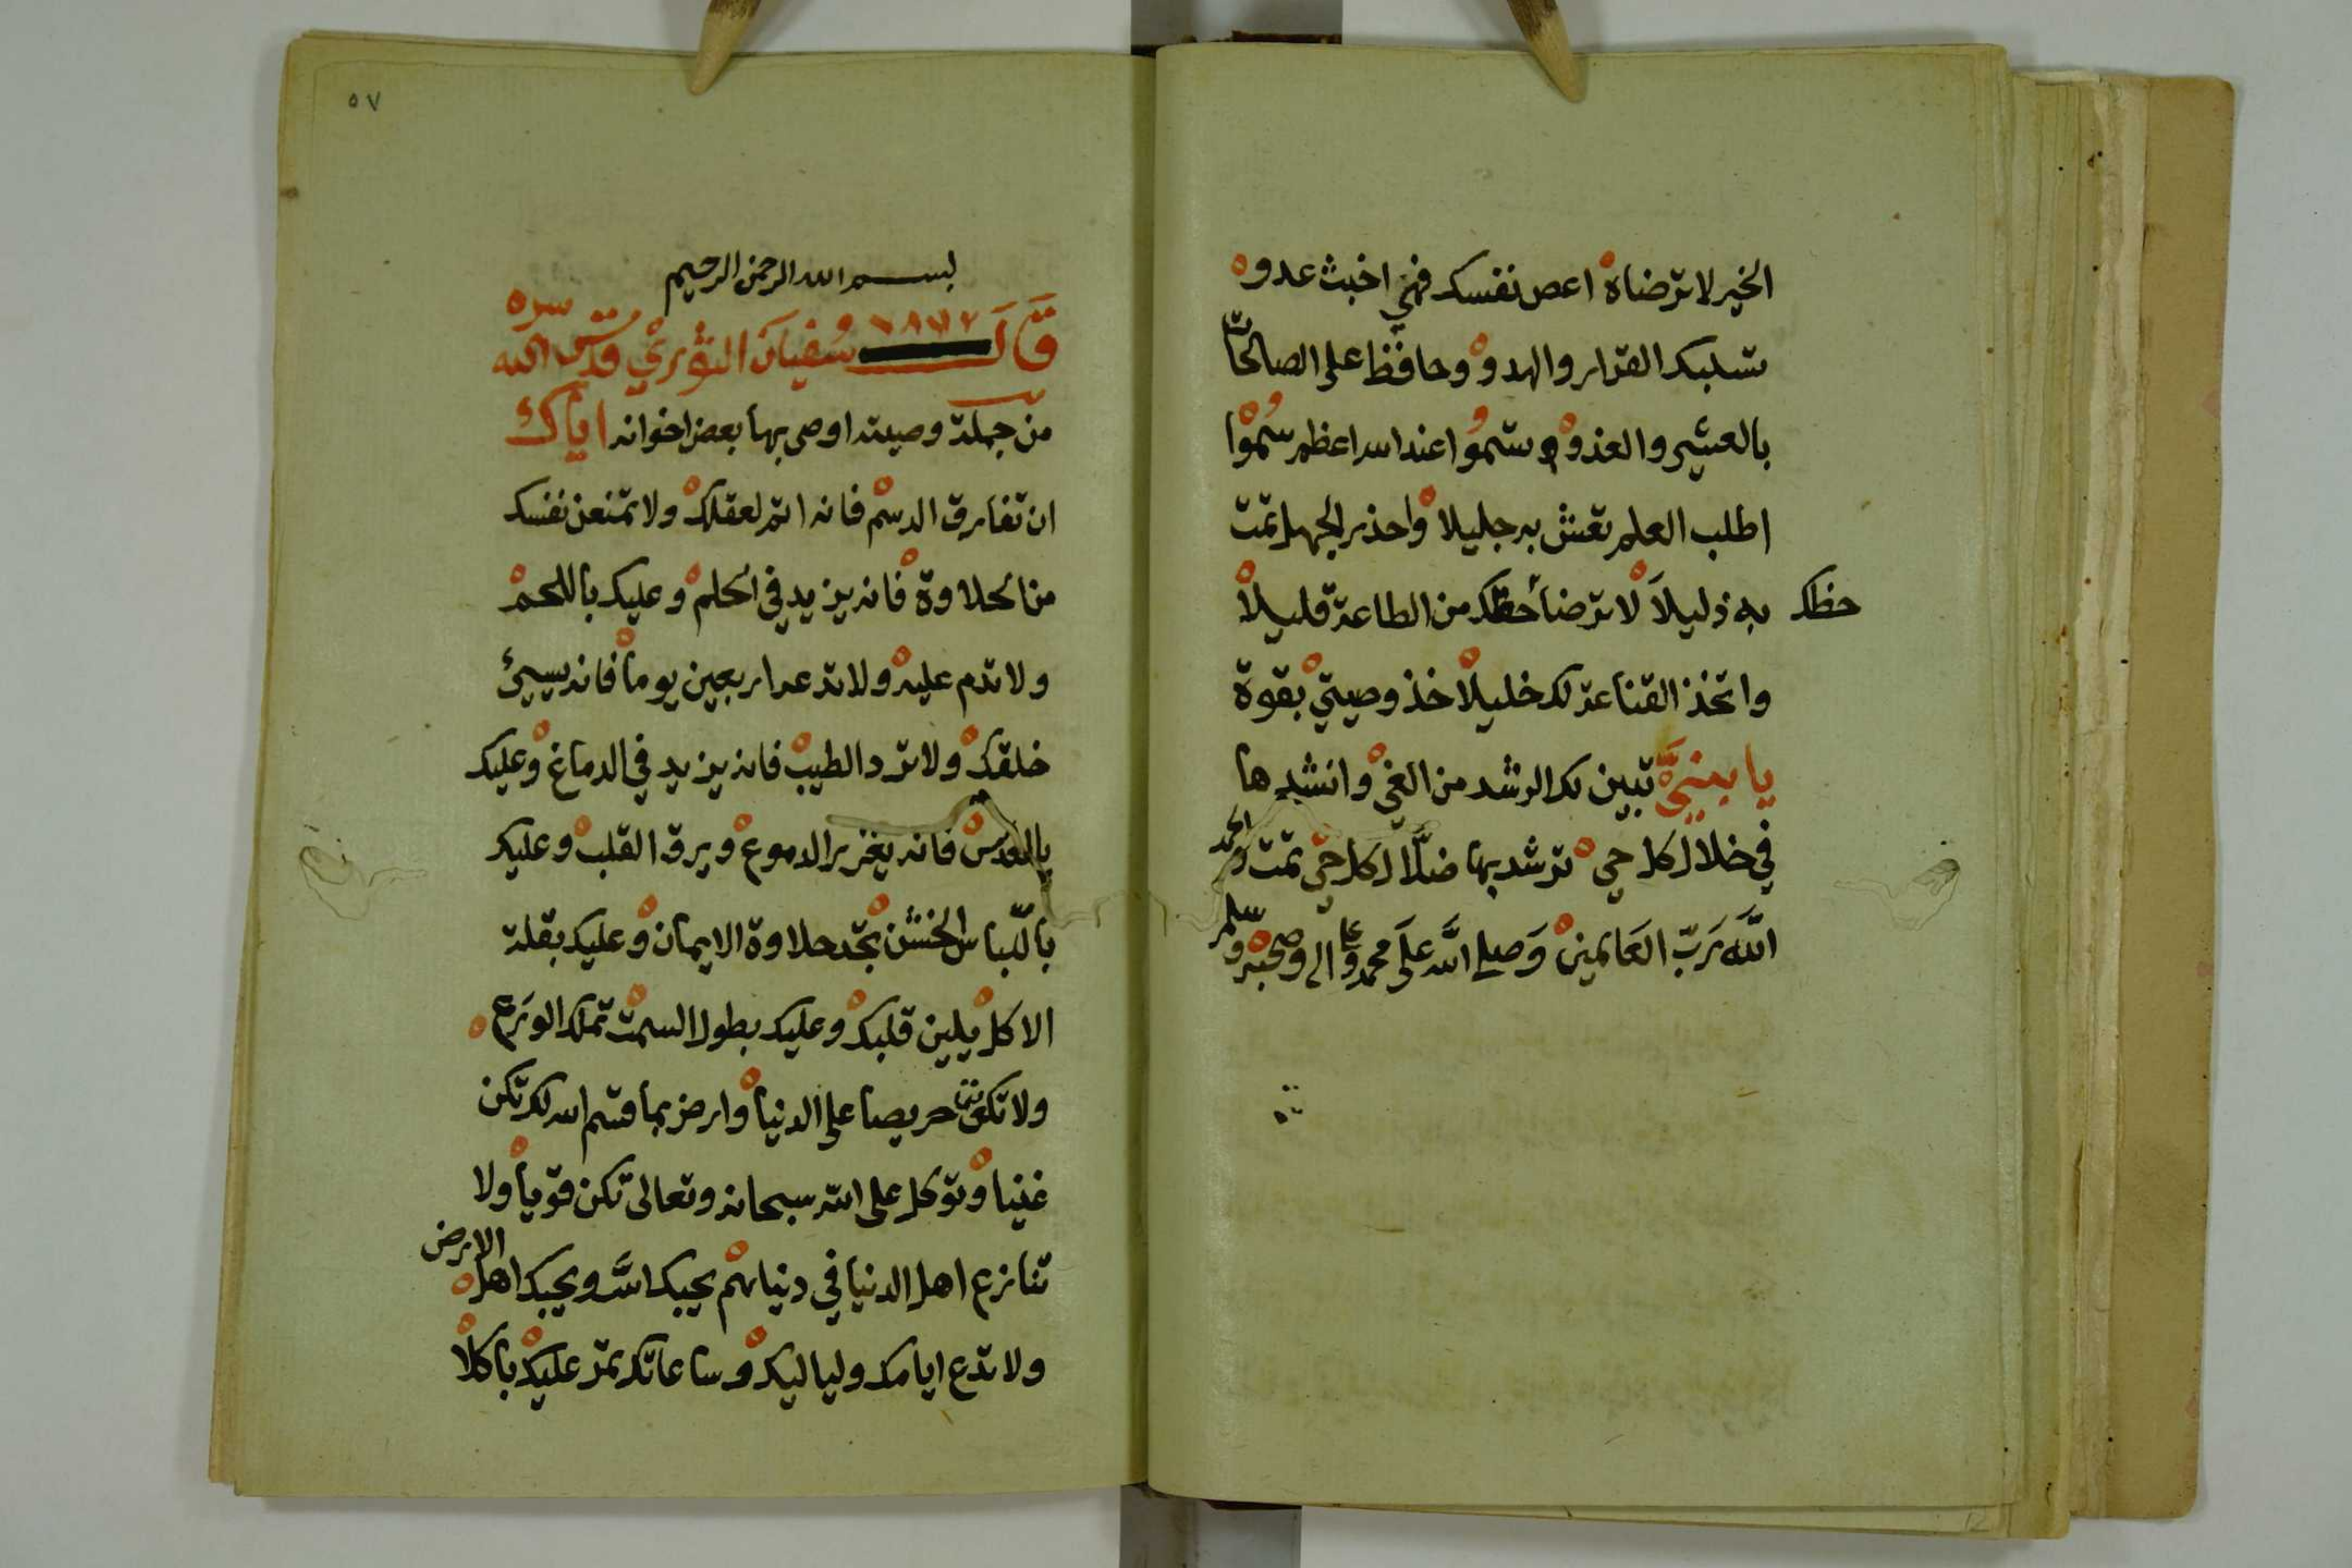 الخير لا ترضاه اعص نفسك فهي اخبث عدو
تسلبك القرار والهدو وحافظ على الصالحات
بالعشي والغدو و سموا عند الله اعظم سموا
اطلب العلم تعش به جليلا واحذر الجهل تمت
به ذليلا لا ترضا حظك من الطاعة قليلا
حظك
واتخذ القناعة لك خليلا خذ وصيتي بقوة
يا بني تبين لك الرشد من الغي وانشدها
في خلال كل حي ترشد بها ضلال كل حي تمت والحمد
الله رب العالمين وصلى الله على محمد وعلى اله وصحبه وسلم
٥٧
بسم الله الرحمن الرحيم
قال سفيان الثوري قدس الله سره
من جملة وصيته اوصى بها بعض اخوانه اياك
ان تفارق الدسم فانه اتم لعقلك ولا تمنعن نفسك
من الحلاوة فانه يزيد في الحلم وعليك باللحم
ولا تدم عليه ولا تدعه اربعين يوما فانه يسيئ
خلقك ولا ترد الطيب فانه يزيد في الدماغ وعليك
بالعدس فانه يغزر الدموع ويرق القلب وعليك
باللباس الخشن تجد حلاوة الايمان وعليك بقلة
الاكل يلين قلبك وعليك بطول السمت تملك الورع
ولا تكونن حريصا على الدنيا وارض بما قسم الله لك تكن
غنيا وتوكل على الله سبحانه وتعالى تكن قويا ولا
تنازع اهل الدنيا في دنياهم يحبك الله ويحبك اهل الارض
ولا تدع ايامك ولياليك وساعاتك تمر عليك باكلا